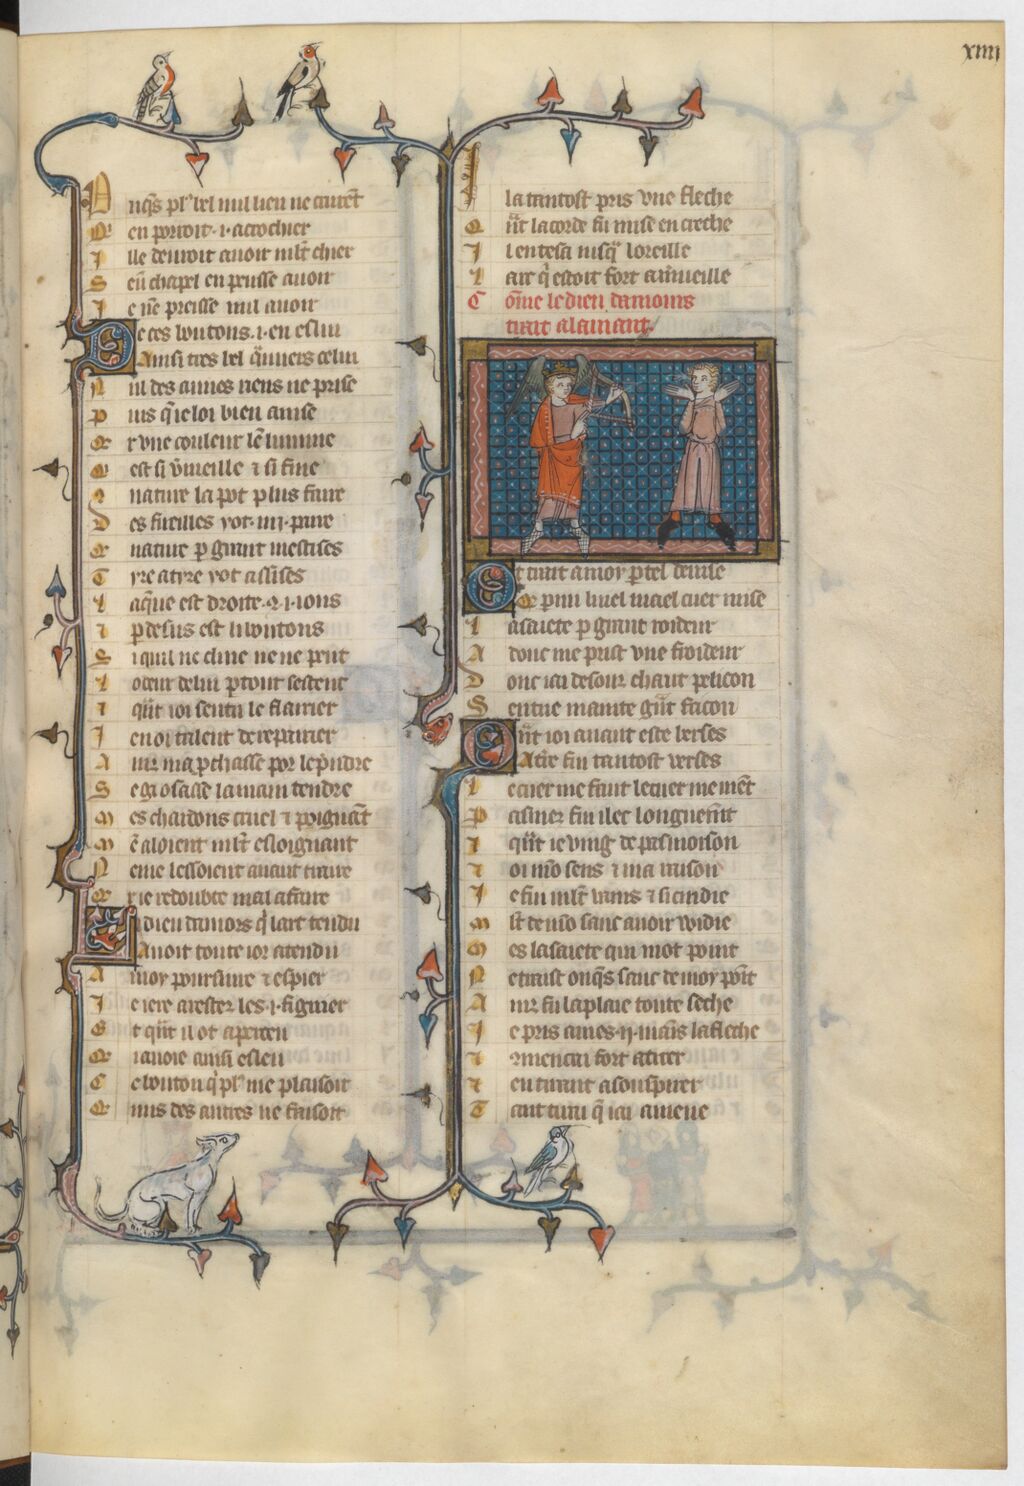 xiiij
Unq̄s pl' bel nul lieu ne crurēt
Qen porroit .i. acrochier
Ille deuroit auoir ml̄t chier
Seun chapel en peusse auoir
Ie nē preisse nul auoir
De ces boutons .i. en eslui
Ainsi tres bel q̄nuers celui
Nul des autres riens ne prise
Puis q̄ ie loi bien auise
Qr vne couleur lēlumine
Qest si v̄meille ⁊ si fine
Q nature la pot plus faire
Des fueilles yot .iiij. paire
Q nature p grant mestises
Tyre atyre yot assises
La q̄ue est droite .9.i. ions
⁊ p desus est li boutons
Si quil ne cline ne ne pent
Lodeur de lui p tout sestent
⁊ qn̄t ioi sentu le flairier
Ien oi talent de repairier
Ains map̄chasse por le p̄ndre
Seg i osasse la main tendre
Mes chardons cruel ⁊ poignāt
Mē aloient ml̄t esloignant
Ne me lessoient auant traire
Qr ie redoubte mal afaire
Li dieu damors q̄ larc tendu
Auoit toute ior atendu
A moy poursuiue ⁊ espier
Iere arestez les .i. figuier
Et qn̄t il ot aperceu
Q iauoie ainsi esleu
Ce bouton q̄ pl' me plaisoit
Q nus des autres ne faisoit
Il a tantost pris vne fleche
Qn̄t la corde fu mise en creche
Il entesa iusq̄ loreille
Larc q̄ estoit fort a m̄ueille
Cōme le dieu damours
tirait alamant.
Et trait a moy p tel deuise
Qr p mi lueil ma el cuer mise
La saiete p grant roideur
Adonc me prist vne froideur
Dont iai desouz chaut peliçon
Sentue mainte gn̄t friçon
Qn̄t ioi auant este berses
A terre fu tantost verses
Le cuer me faut le cuer me mēt
Pasmez fui ilec longuem̄t
⁊ qn̄t ie ving de pasmoison
⁊ oi mō sens ⁊ ma raison
Ie fui ml̄t vains ⁊ si cuidie
Mes la saiete qui mot point
Ne traist onq̄s sanc de moy poīt
Ains fu la plaie toute seche
Ie pris a mes .ij. mains la fleche
⁊ 9mencai fort a tirer
⁊ en tirant a souspirer
Tant tirai q̄ iai amene